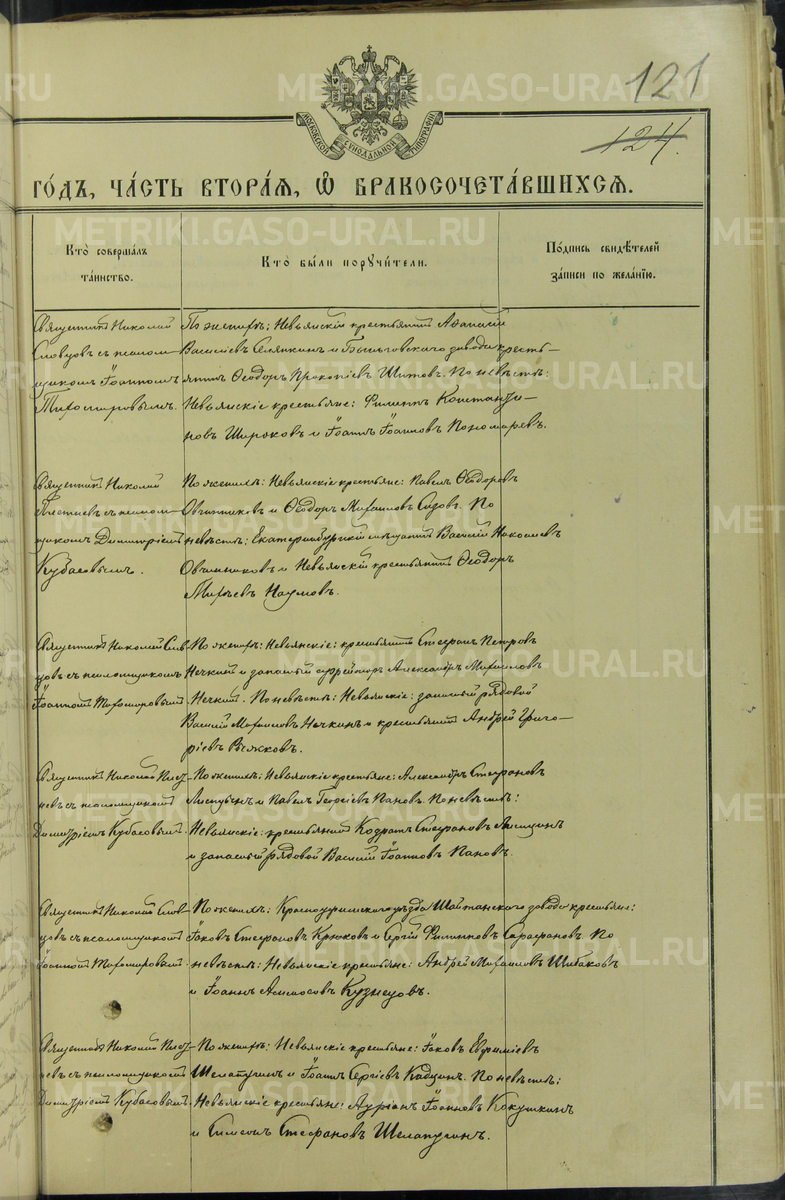 121
124.
МОСКОВСКОЙ СѴНОДАЛЬНОЙ ТИПОГРАФІИ
ГО́ДЪ, ЧА́СТЬ ВТОРА́Я, Ѽ БРАКОСОЧЕТА́ВШИХСЯ.
Кто̀ соверша́лъ та́инство.
Кто̀ бы́ли поручи́тели.
По́дпись свидѣ́телей за́писи по жела́нїю.
Священникъ Николай
Словцовъ съ псаломщикомъ Іоанномъ
Тихомировымъ.
По женихѣ: Невьянскій крестьянинъ Аѳанасій
Васильевъ Селянкинъ и Быньговскаго завода крестьянинъ Ѳеодоръ Прокопіевъ Шитовъ. По невѣстѣ:
Невьянскіе крестьяне: Филиппъ Константиновъ Широковъ и Іоаннъ Іоанновъ Пономаревъ.
Священникъ Николай
съ псаломщикомъ Димитріемъ
Кубасовымъ.
По женихѣ: Невьянскіе крестьяне: Павелъ Ѳеодоровъ
Овчинниковъ и Ѳеодоръ Михаиловъ Сизовъ. По
невѣстѣ: Екатеринбургскій мѣщанинъ Василій Николаевъ
Овчинниковъ и Невьянскій крестьянинъ Ѳеодоръ
Наумовъ.
Священникъ Николай Словцовъ съ псаломщикомъ
Іоанномъ Тихомировымъ.
По женихѣ: Невьянскіе: крестьянинъ Стефанъ Петровъ
Нечкинъ и запасный ефрейторъ Александръ Михаиловъ
Нечкинъ. По невѣстѣ: Невьянскіе: запасный рядовой
Василій Михаиловъ Нечкинъ и крестьянинъ Андрей Григоріевъ
Священникъ Николай
съ псаломщикомъ
Димитріемъ Кубасовымъ.
По женихѣ: Невьянскіе крестьяне: Александръ Стефановъ
и Павелъ Георгіевъ Пановъ. По невѣстѣ:
Невьянскіе: крестьянинъ Кодратъ Стефановъ
и запасный рядовой Василій Іоанновъ Пановъ.
Священникъ Николай Словцовъ съ псаломщикомъ
Іоанномъ Тихомировымъ.
По женихѣ: Красноуфимскаго уѣзда Шайтанскаго завода крестьяне:
Іаковъ Стефановъ Крюковъ и Сергій Филипповъ Сарафановъ. По
невѣстѣ: Невьянскіе крестьяне: Андрей Михаиловъ Шибаковъ
и Іоаннъ Кузнецовъ.
Священникъ Николай
съ псаломщикомъ
Димитріемъ Кубасовымъ.
По женихѣ: Невьянскіе крестьяне: Іаковъ Евфиміевъ
Шелапугинъ и Іоаннъ Сергіевъ Кадцынъ. По невѣстѣ:
Невьянскіе крестьяне: Адріанъ Іоанновъ Кокушкинъ
и Симеонъ Стефановъ Шелапугинъ.
METRIKI.GASO-URAL.RU